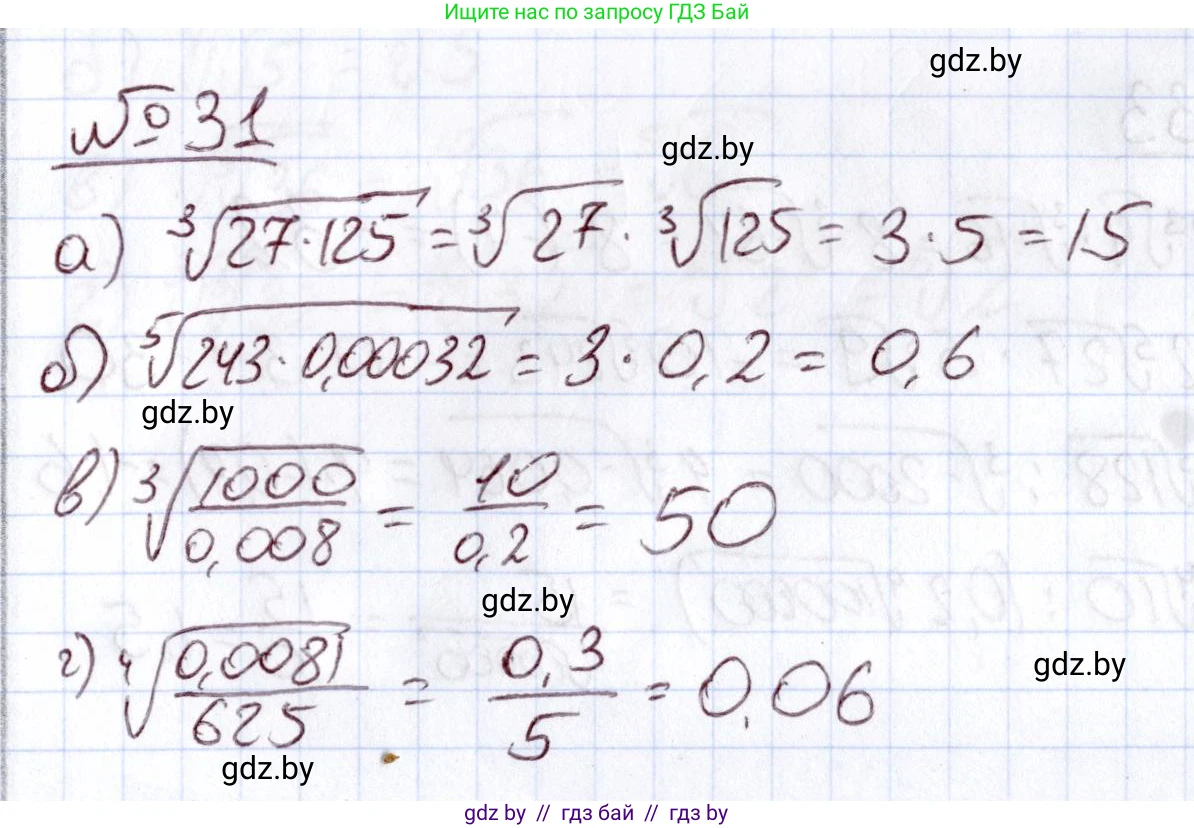 Ищите нас по запросу ГДЗ Бай
gdz.by
№ 31
gdz.by
а) ∛(27·125) = ∛27 · ∛125 = 3·5 = 15
б) ⁵√(243·0,00032) = 3·0,2 = 0,6
gdz.by
в) ∛(1000/0,008) = 10/0,2 = 50
gdz.by
г) ⁴√(0,0081/625) = 0,3/5 = 0,06
gdz.by
gdz.by
gdz by // гдз бай // гдз by